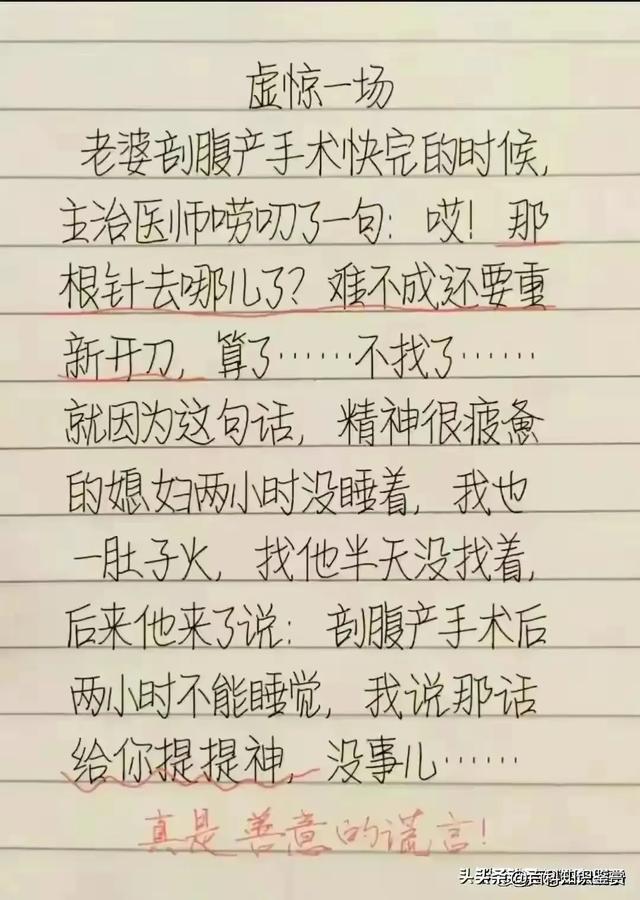 虚惊一场
老婆剖腹产手术快完的时候,
主治医师唠叨了一句：哎！那
根针去哪儿了？难不成还要重
新开刀,算了……不找了……
就因为这句话,精神很疲惫
的媳妇两小时没睡着,我也
一肚子火,找他半天没找着,
后来他来了说：剖腹产手术后
两小时不能睡觉,我说那话
给你提提神,没事儿……
真是善意的谎言！